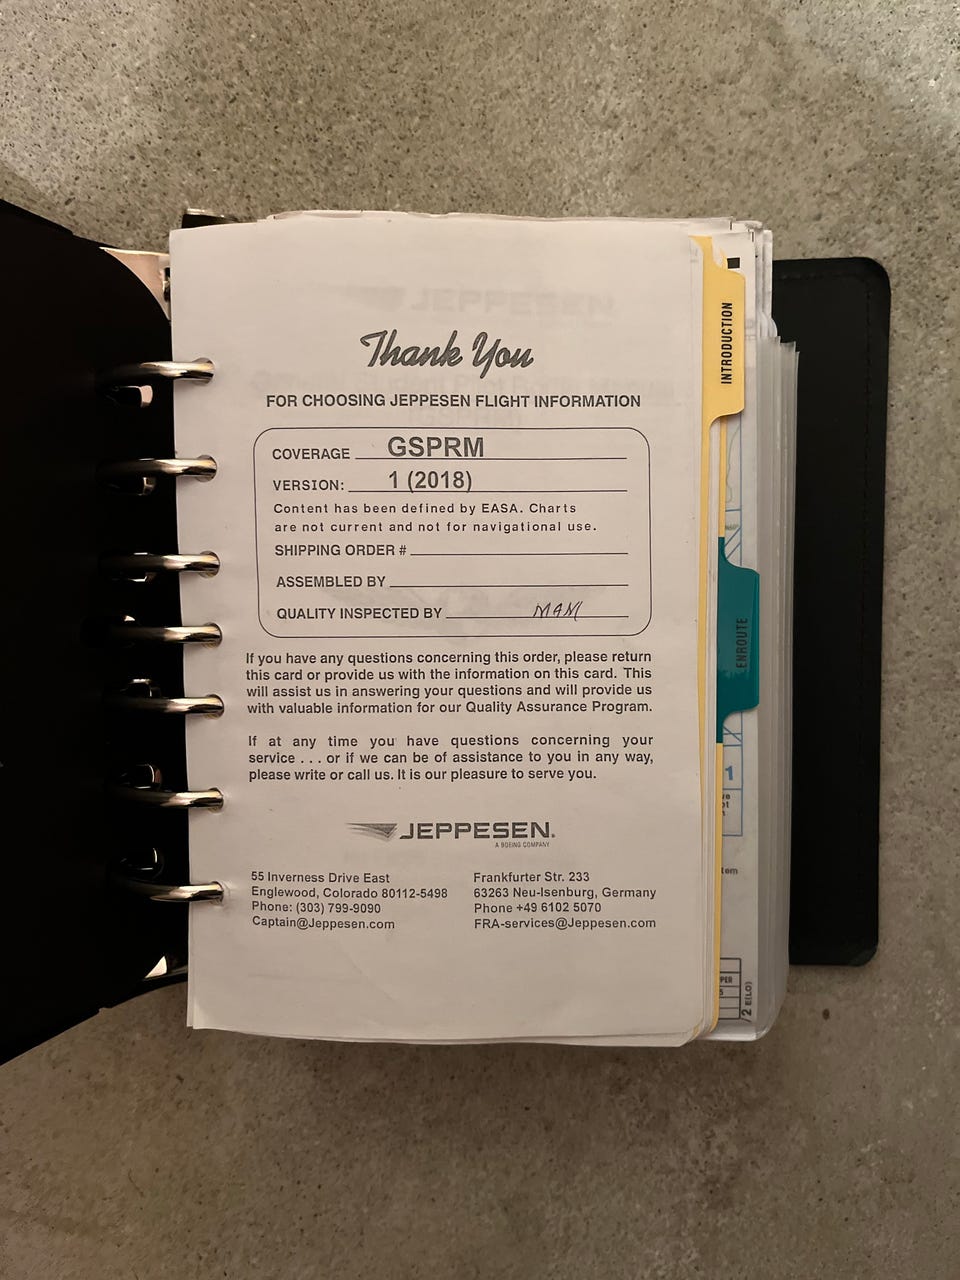 Thank You
FOR CHOOSING JEPPESEN FLIGHT INFORMATION
COVERAGE GSPRM
VERSION: 1 (2018)
Content has been defined by EASA. Charts
are not current and not for navigational use.
SHIPPING ORDER #
ASSEMBLED BY
QUALITY INSPECTED BY
If you have any questions concerning this order, please return
this card or provide us with the information on this card. This
will assist us in answering your questions and will provide us
with valuable information for our Quality Assurance Program.
If at any time you have questions concerning your
service . . . or if we can be of assistance to you in any way,
please write or call us. It is our pleasure to serve you.
JEPPESEN.
A BOEING COMPANY
55 Inverness Drive East
Englewood, Colorado 80112-5498
Phone: (303) 799-9090
Captain@Jeppesen.com
Frankfurter Str. 233
63263 Neu-Isenburg, Germany
Phone +49 6102 5070
FRA-services@Jeppesen.com
INTRODUCTION
ENROUTE
1